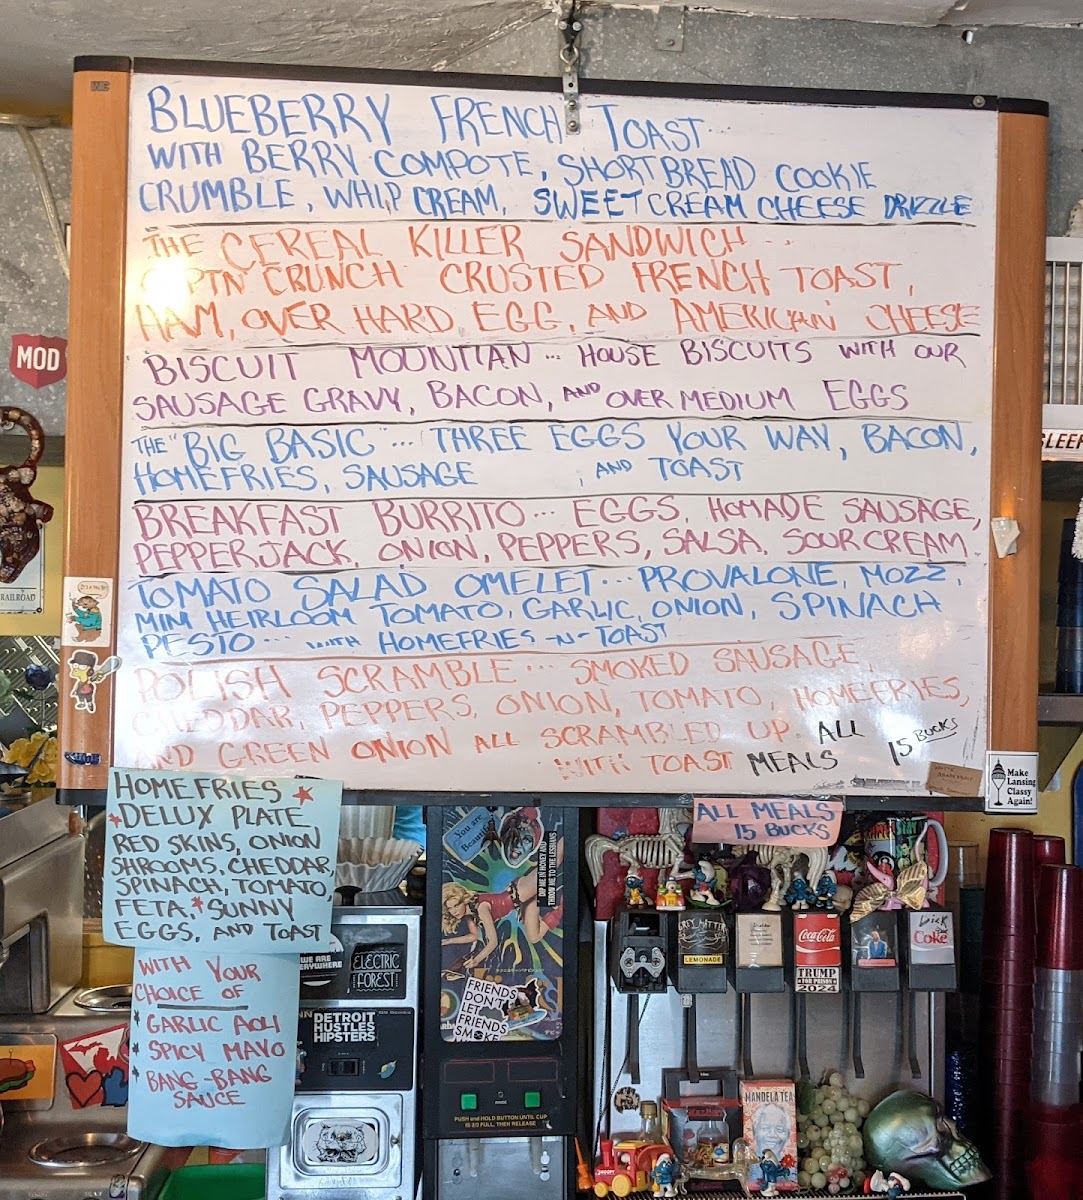 BLUEBERRY FRENCH TOAST
WITH BERRY COMPOTE, SHORTBREAD COOKIE
CRUMBLE, WHIP CREAM, SWEETCREAM CHEESE DRIZZLE
THE CEREAL KILLER SANDWICH...
CAPTN CRUNCH CRUSTED FRENCH TOAST,
HAM, OVER HARD EGG, AND AMERICAN CHEESE
BISCUIT MOUNTIAN... HOUSE BISCUITS WITH OUR
SAUSAGE GRAVY, BACON, AND OVER MEDIUM EGGS
THE "BIG BASIC"... THREE EGGS YOUR WAY, BACON,
HOMEFRIES, SAUSAGE , AND TOAST
BREAKFAST BURRITO... EGGS, HOMADE SAUSAGE,
PEPPERJACK, ONION, PEPPERS, SALSA, SOUR CREAM
TOMATO SALAD OMELET... PROVALONE, MOZZ,
MINI HEIRLOOM TOMATO, GARLIC, ONION, SPINACH
PESTO... WITH HOMEFRIES -N- TOAST
POLISH SCRAMBLE... SMOKED SAUSAGE,
CHEDDAR, PEPPERS, ONION, TOMATO, HOMEFRIES,
AND GREEN ONION ALL SCRAMBLED UP.
WITH TOAST
ALL MEALS 15 BUCKS
MOD
RAILROAD
SLEEP
Make
Lansing
Classy
Again!
HOMEFRIES
DELUX PLATE
RED SKINS, ONION
SHROOMS, CHEDDAR,
SPINACH, TOMATO,
FETA, SUNNY
EGGS, AND TOAST
WITH YOUR
CHOICE OF
GARLIC AOLI
SPICY MAYO
BANG-BANG
SAUCE
ALL MEALS
15 BUCKS
You are
Beautiful
DIP ME IN HONEY AND
THROW ME TO THE LESBIANS
WE ARE
EVERYWHERE
ELECTRIC
FOREST
DETROIT
HUSTLES
HIPSTERS
FRIENDS
DON'T
LET
FRIENDS
SMOKE
PUSH and HOLD BUTTON UNTIL CUP
IS 2/3 FULL, THEN RELEASE
LEMONADE
Coca-Cola
TRUMP
FOR PRISON
2024
Coke
MANDELA TEA